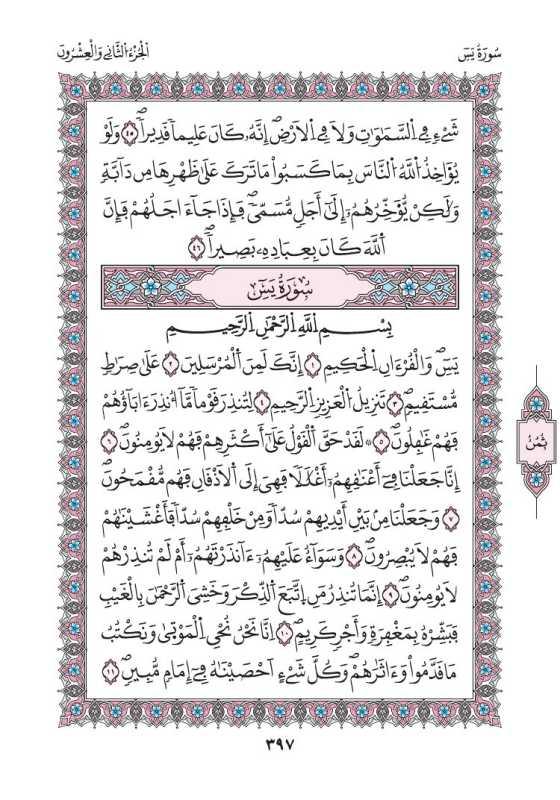 سُورَةُ يَسٓ
اَلْجُزْءُ الثَّانِي وَالْعِشْرُونَ
شَےْءٖ فِے اِ۬لسَّمَٰوَٰتِ وَلَا فِے اِ۬لَارْضِۖ إِنَّهُۥ كَانَ عَلِيماٗ قَدِيراٗۖ ٤٥ وَلَوْ
يُوَ۬اخِذُ اُ۬للَّهُ اُ۬لنَّاسَ بِمَا كَسَبُواْ مَا تَرَكَ عَلَىٰ ظَهْرِهَا مِن دَآبَّةٖ
وَلَٰكِنْ يُّوَ۬خِّرُهُمُۥٓ إِلَىٰٓ أَجَلٖ مُّسَمّيٗۖ فَإِذَا جَآءَ اجَلُهُمْ فَإِنَّ
اَ۬للَّهَ كَانَ بِعِبَادِهِۦ بَصِيراٗۖ ٤٦
سُورَةُ يَسٓ
بِسْمِ اِ۬للَّهِ اِ۬لرَّحْمَٰنِ اِ۬لرَّحِيمِ
يَسٓۖ وَالْقُرْءَانِ اِ۬لْحَكِيمِ ١ إِنَّكَ لَمِنَ اَ۬لْمُرْسَلِينَ ٢ عَلَىٰ صِرَٰطٖ
مُّسْتَقِيمٖۖ ٣ تَنزِيلُ اُ۬لْعَزِيزِ اِ۬لرَّحِيمِ ٤ لِتُنذِرَ قَوْماٗ مَّآ أُنذِرَ ءَابَآؤُهُمْ
فَهُمْ غَٰفِلُونَۖ ٥ ۞ لَقَدْ حَقَّ اَ۬لْقَوْلُ عَلَىٰٓ أَكْثَرِهِمْ فَهُمْ لَا يُومِنُونَۖ ٦
إِنَّا جَعَلْنَا فِےٓ أَعْنَٰقِهِمُۥٓ أَغْلَٰلاٗ فَهِيَ إِلَى اَ۬لَاذْقَٰنِ فَهُم مُّقْمَحُونَۖ
٧ وَجَعَلْنَا مِنۢ بَيْنِ أَيْدِيهِمْ سُدّاٗ وَمِنْ خَلْفِهِمْ سُدّاٗ فَأَغْشَيْنَٰهُمْ
فَهُمْ لَا يُبْصِرُونَۖ ٨ وَسَوَآءٌ عَلَيْهِمُۥٓ ءَآنذَرْتَهُمُۥٓ أَمْ لَمْ تُنذِرْهُمْ
لَا يُومِنُونَۖ ٩ إِنَّمَا تُنذِرُ مَنِ اِ۪تَّبَعَ اَ۬لذِّكْرَ وَخَشِيَ اَ۬لرَّحْمَٰنَ بِالْغَيْبِ
فَبَشِّرْهُ بِمَغْفِرَةٖ وَأَجْرٖ كَرِيمٍۖ ١٠ اِنَّا نَحْنُ نُحْيِ اِ۬لْمَوْتَىٰ وَنَكْتُبُ
مَا قَدَّمُواْ وَءَاثَٰرَهُمْۖ وَكُلَّ شَےْءٍ اَحْصَيْنَٰهُ فِےٓ إِمَامٖ مُّبِينٖۖ ١١
ثُمُنُ
٣٩٧